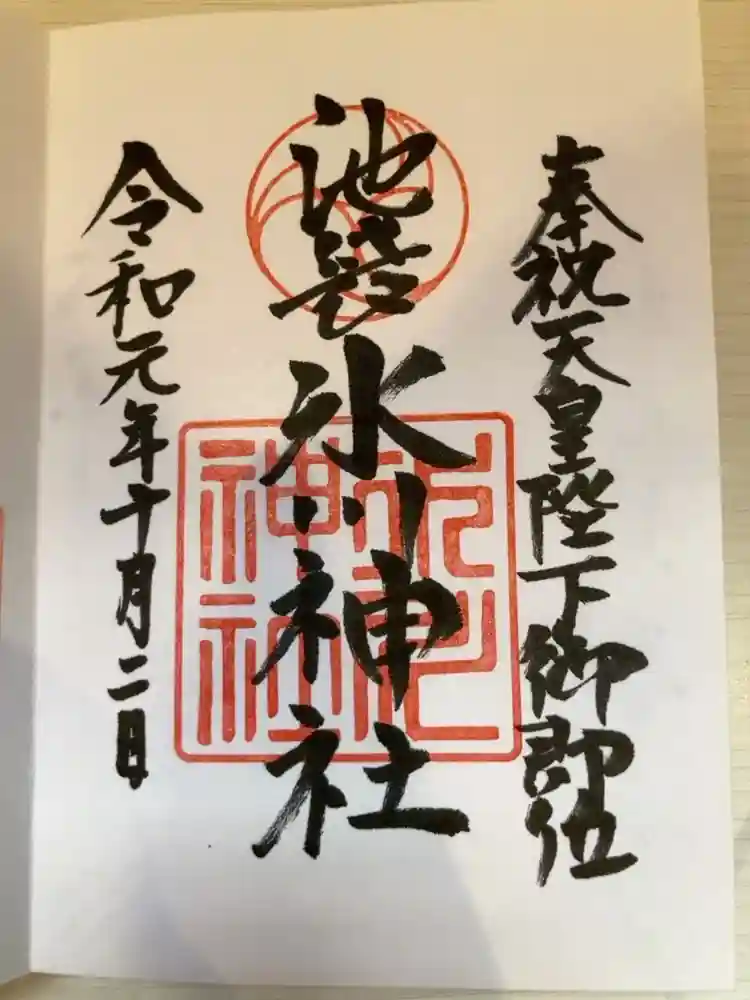 奉祝天皇陛下御即位
池袋氷川神社
令和元年十月二日